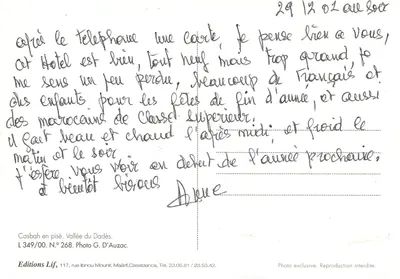 29 12 02 au soir
après le telephone une carte, je pense bien a vous,
cet Hotel est bien, tout neuf mais trop grand, je
me sens un peu perdu, beaucoup de Français et
des enfants pour les fêtes de fin d'année, et aussi
des marocains de classe superieur.
il fait beau et chaud l'après midi, et froid le
matin et le soir.
J'espère vous voir en debut de l'année prochaine.
a bientôt bisous
Anne
Casbah en pisé. Vallée du Dadès.
L 349/00. N.° 268. Photo G. D'Auzac.
Editions Lif, 117, rue Ibnou Mounir, Maârif, Casablanca, Tél. 
Photo exclusive. Reproduction interdite.